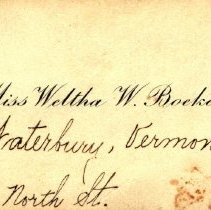 Miss Weltha W. Boeke
Waterbury, Vermon
North St.